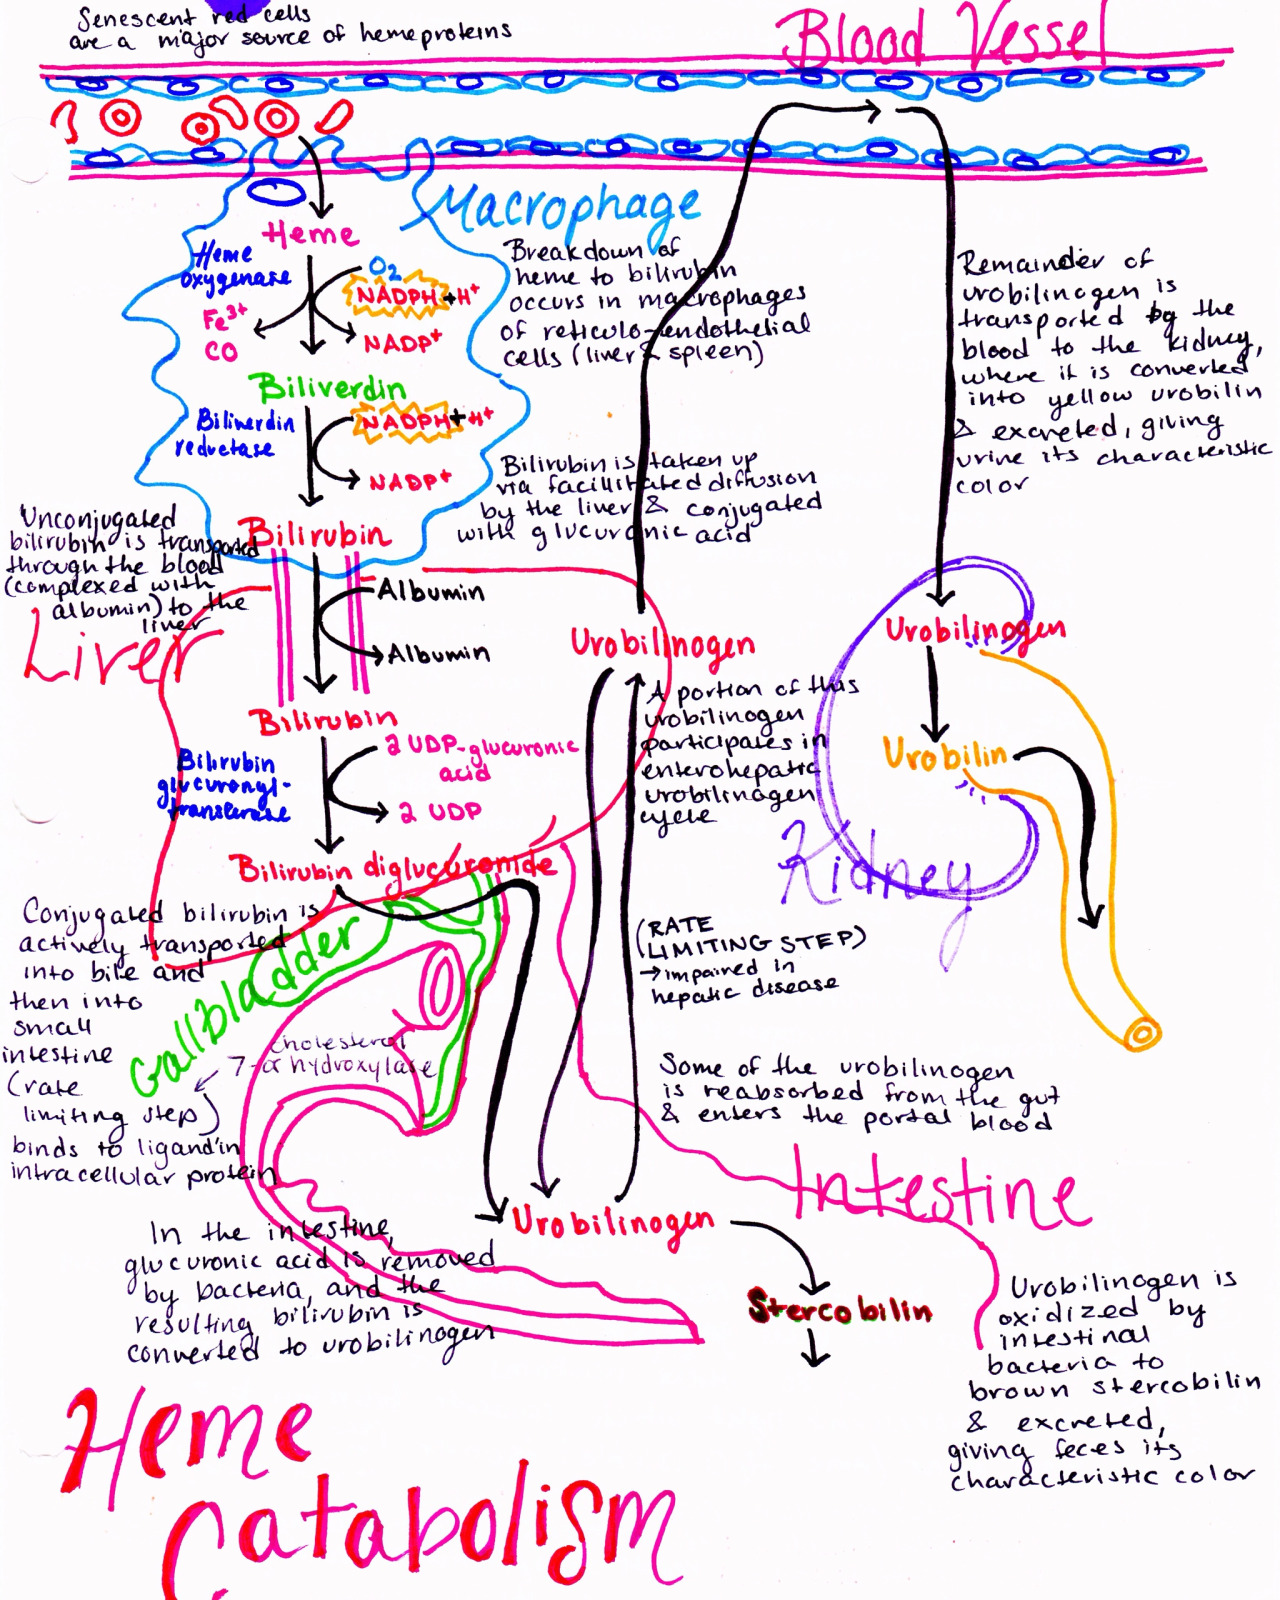 Senescent red cells
are a major source of hemeproteins
Blood Vessel
Macrophage
Heme
Heme
oxygenase
O2
NADPH + H+
Fe3+
CO
NADP+
Breakdown of
heme to bilirubin
occurs in macrophages
of reticulo-endothelial
cells (liver & spleen)
Biliverdin
Biliverdin
reductase
NADPH + H+
NADP+
Bilirubin is taken up
via facillitated diffusion
by the liver & conjugated
with glucuronic acid
Unconjugated
bilirubin is transported
through the blood
(complexed with
albumin) to the
liver
Bilirubin
Albumin
Albumin
Liver
Bilirubin
Bilirubin
glucuronyl-
transferase
2 UDP-glucuronic
acid
2 UDP
Bilirubin diglucuronide
Urobilinogen
A portion of this
urobilinogen
participates in
enterohepatic
urobilinogen
cycle
Remainder of
urobilinogen is
transported by the
blood to the kidney,
where it is converted
into yellow urobilin
& excreted, giving
urine its characteristic
color
Urobilinogen
Urobilin
Kidney
Conjugated bilirubin is
actively transported
into bile and
then into
small
intestine
(rate
limiting step)
binds to ligand'in
intracellular protein
Gallbladder
Cholesterol
7-α hydroxylase
(RATE
LIMITING STEP)
→ impaired in
hepatic disease
Some of the urobilinogen
is reabsorbed from the gut
& enters the portal blood
Intestine
In the intestine,
glucuronic acid is removed
by bacteria, and the
resulting bilirubin is
converted to urobilinogen
Urobilinogen
Stercobilin
Urobilinogen is
oxidized by
intestinal
bacteria to
brown stercobilin
& excreted,
giving feces its
characteristic color
Heme
Catabolism